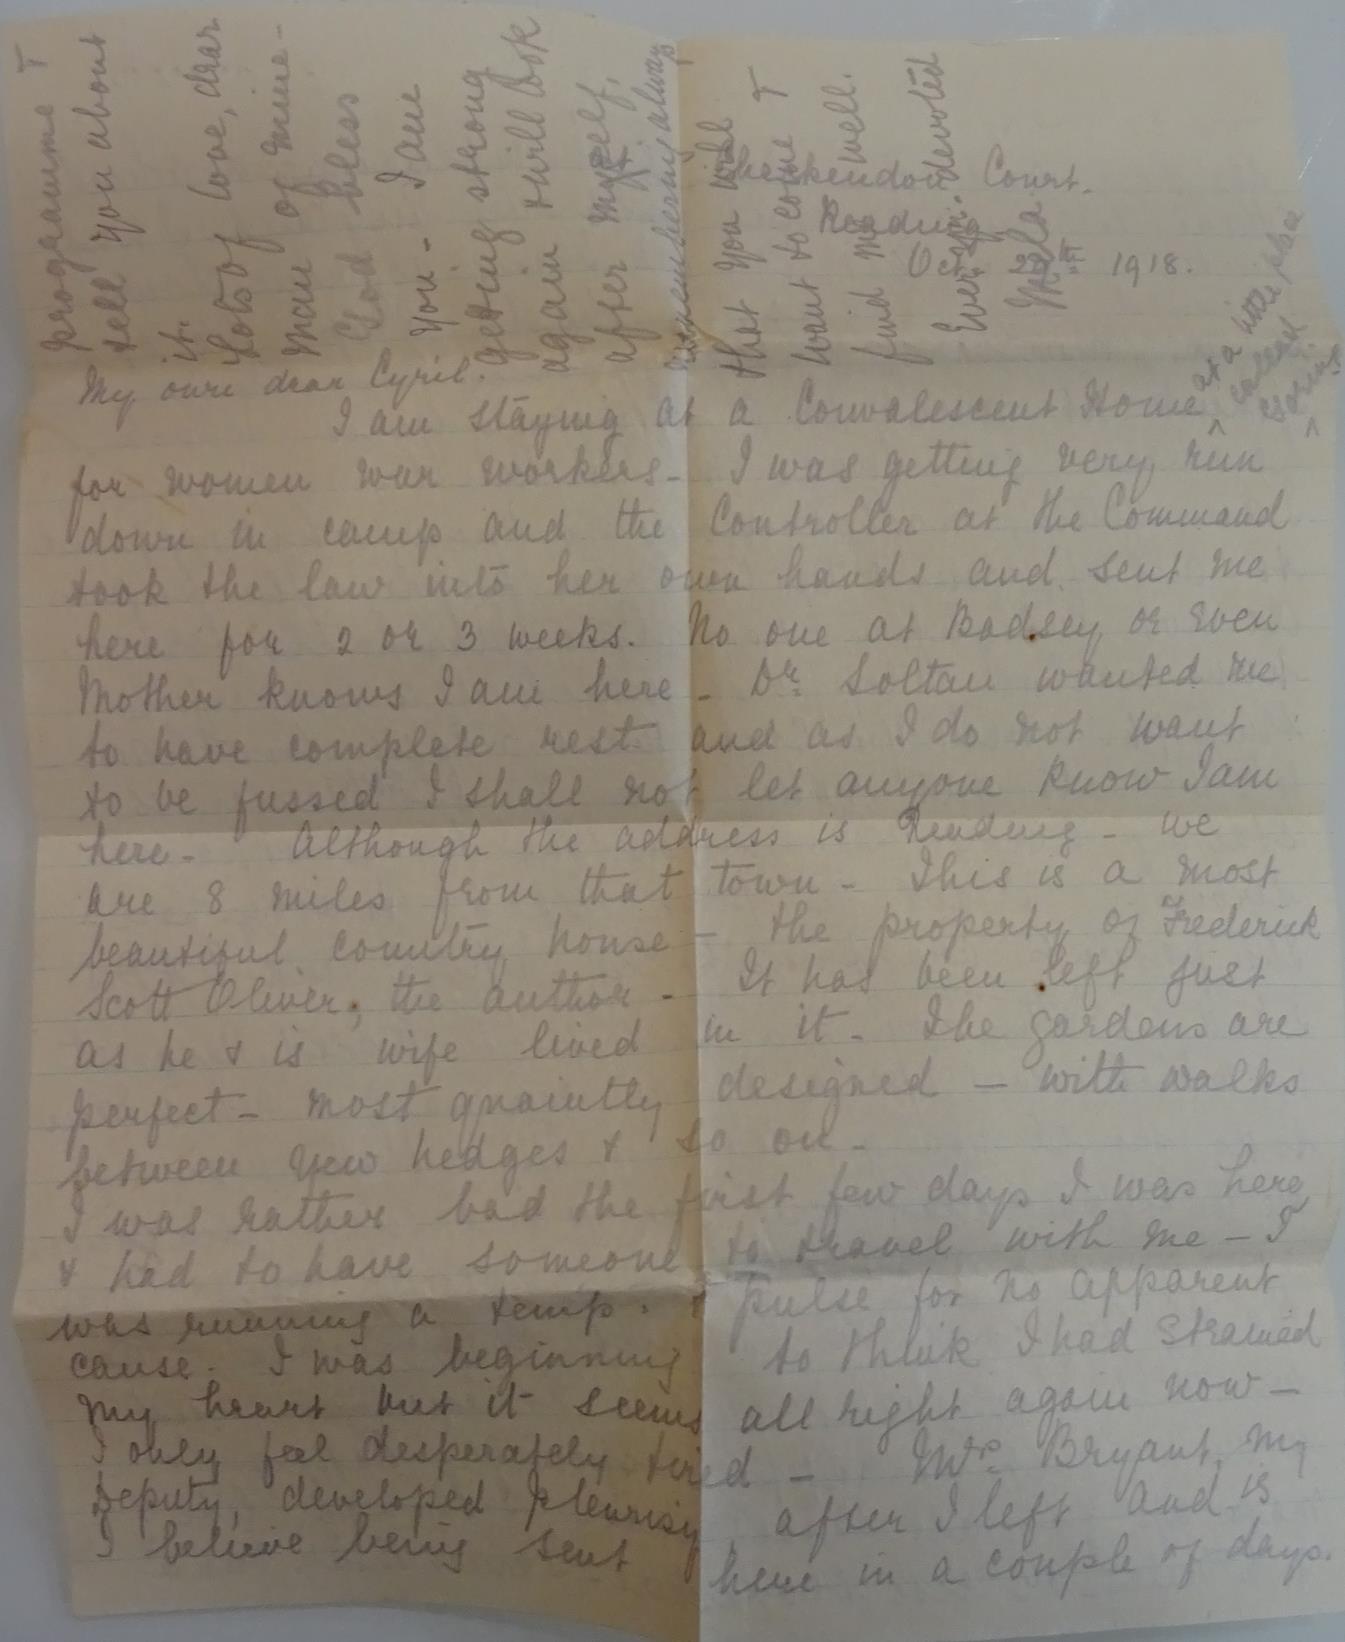 Checkendon Court.
Reading.
Oct 22nd 1918.
My own dear Cyril.
I am staying at a Convalescent Home
at a little place
called
for women war workers - I was getting very run
down in camp and the Controller at the Command
took the law into her own hands and sent me
here for 2 or 3 weeks. No one at Badsey or even
Mother knows I am here - Dr. Soltau wanted me
to have complete rest and as I do not want
to be fussed I shall not let anyone know I am
here - Although the address is Reading - we
are 8 miles from that town - This is a most
beautiful country house - the property of Frederick
Scott Oliver, the author - It has been left just
as he & is wife lived in it - The gardens are
perfect - most quaintly designed - with walks
between yew hedges & so on -
I was rather bad the first few days I was here
& had to have someone to travel with me - I
was running a temp. & pulse for no apparent
cause. I was beginning to think I had strained
my heart but it seems all right again now -
I only feel desperately tired - Mrs. Bryant, my
Deputy, developed pleurisy after I left and is
I believe being sent here in a couple of days.
programme I
tell you about
it.
Lots of love, dear
man of mine -
God bless
you - I am
getting strong
again & will look
after myself,
remembering always
that you will
want to come &
find me well.
Ever yr. devoted
Mela